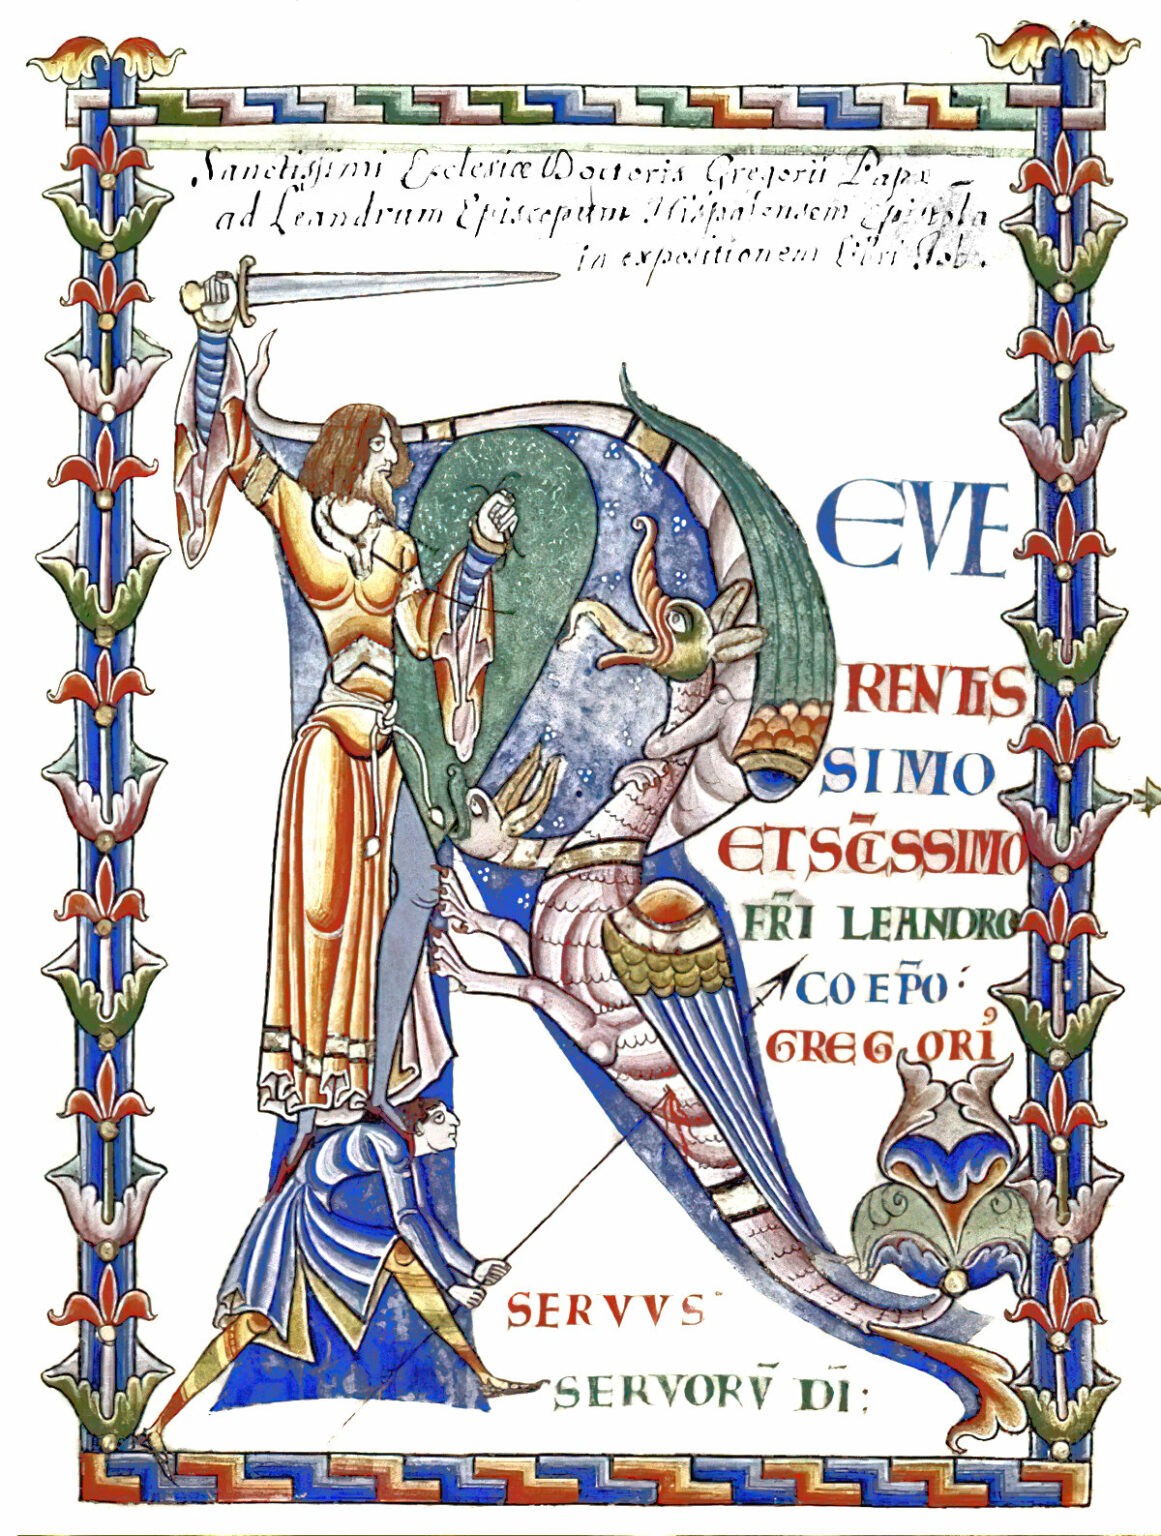 Sanctissimi Ecclesiæ Doctoris Gregorii Papæ
ad Leandrum Episcopum Hispalensem Epistola
in expositionem Libri Iob.
R
EVE
RENTIS
SIMO
ET SC̄ISSIMO
FR̄I LEANDRO
COEP̄O
GREGORIꝰ
SERVVS
SERVORV̄ DĪ: